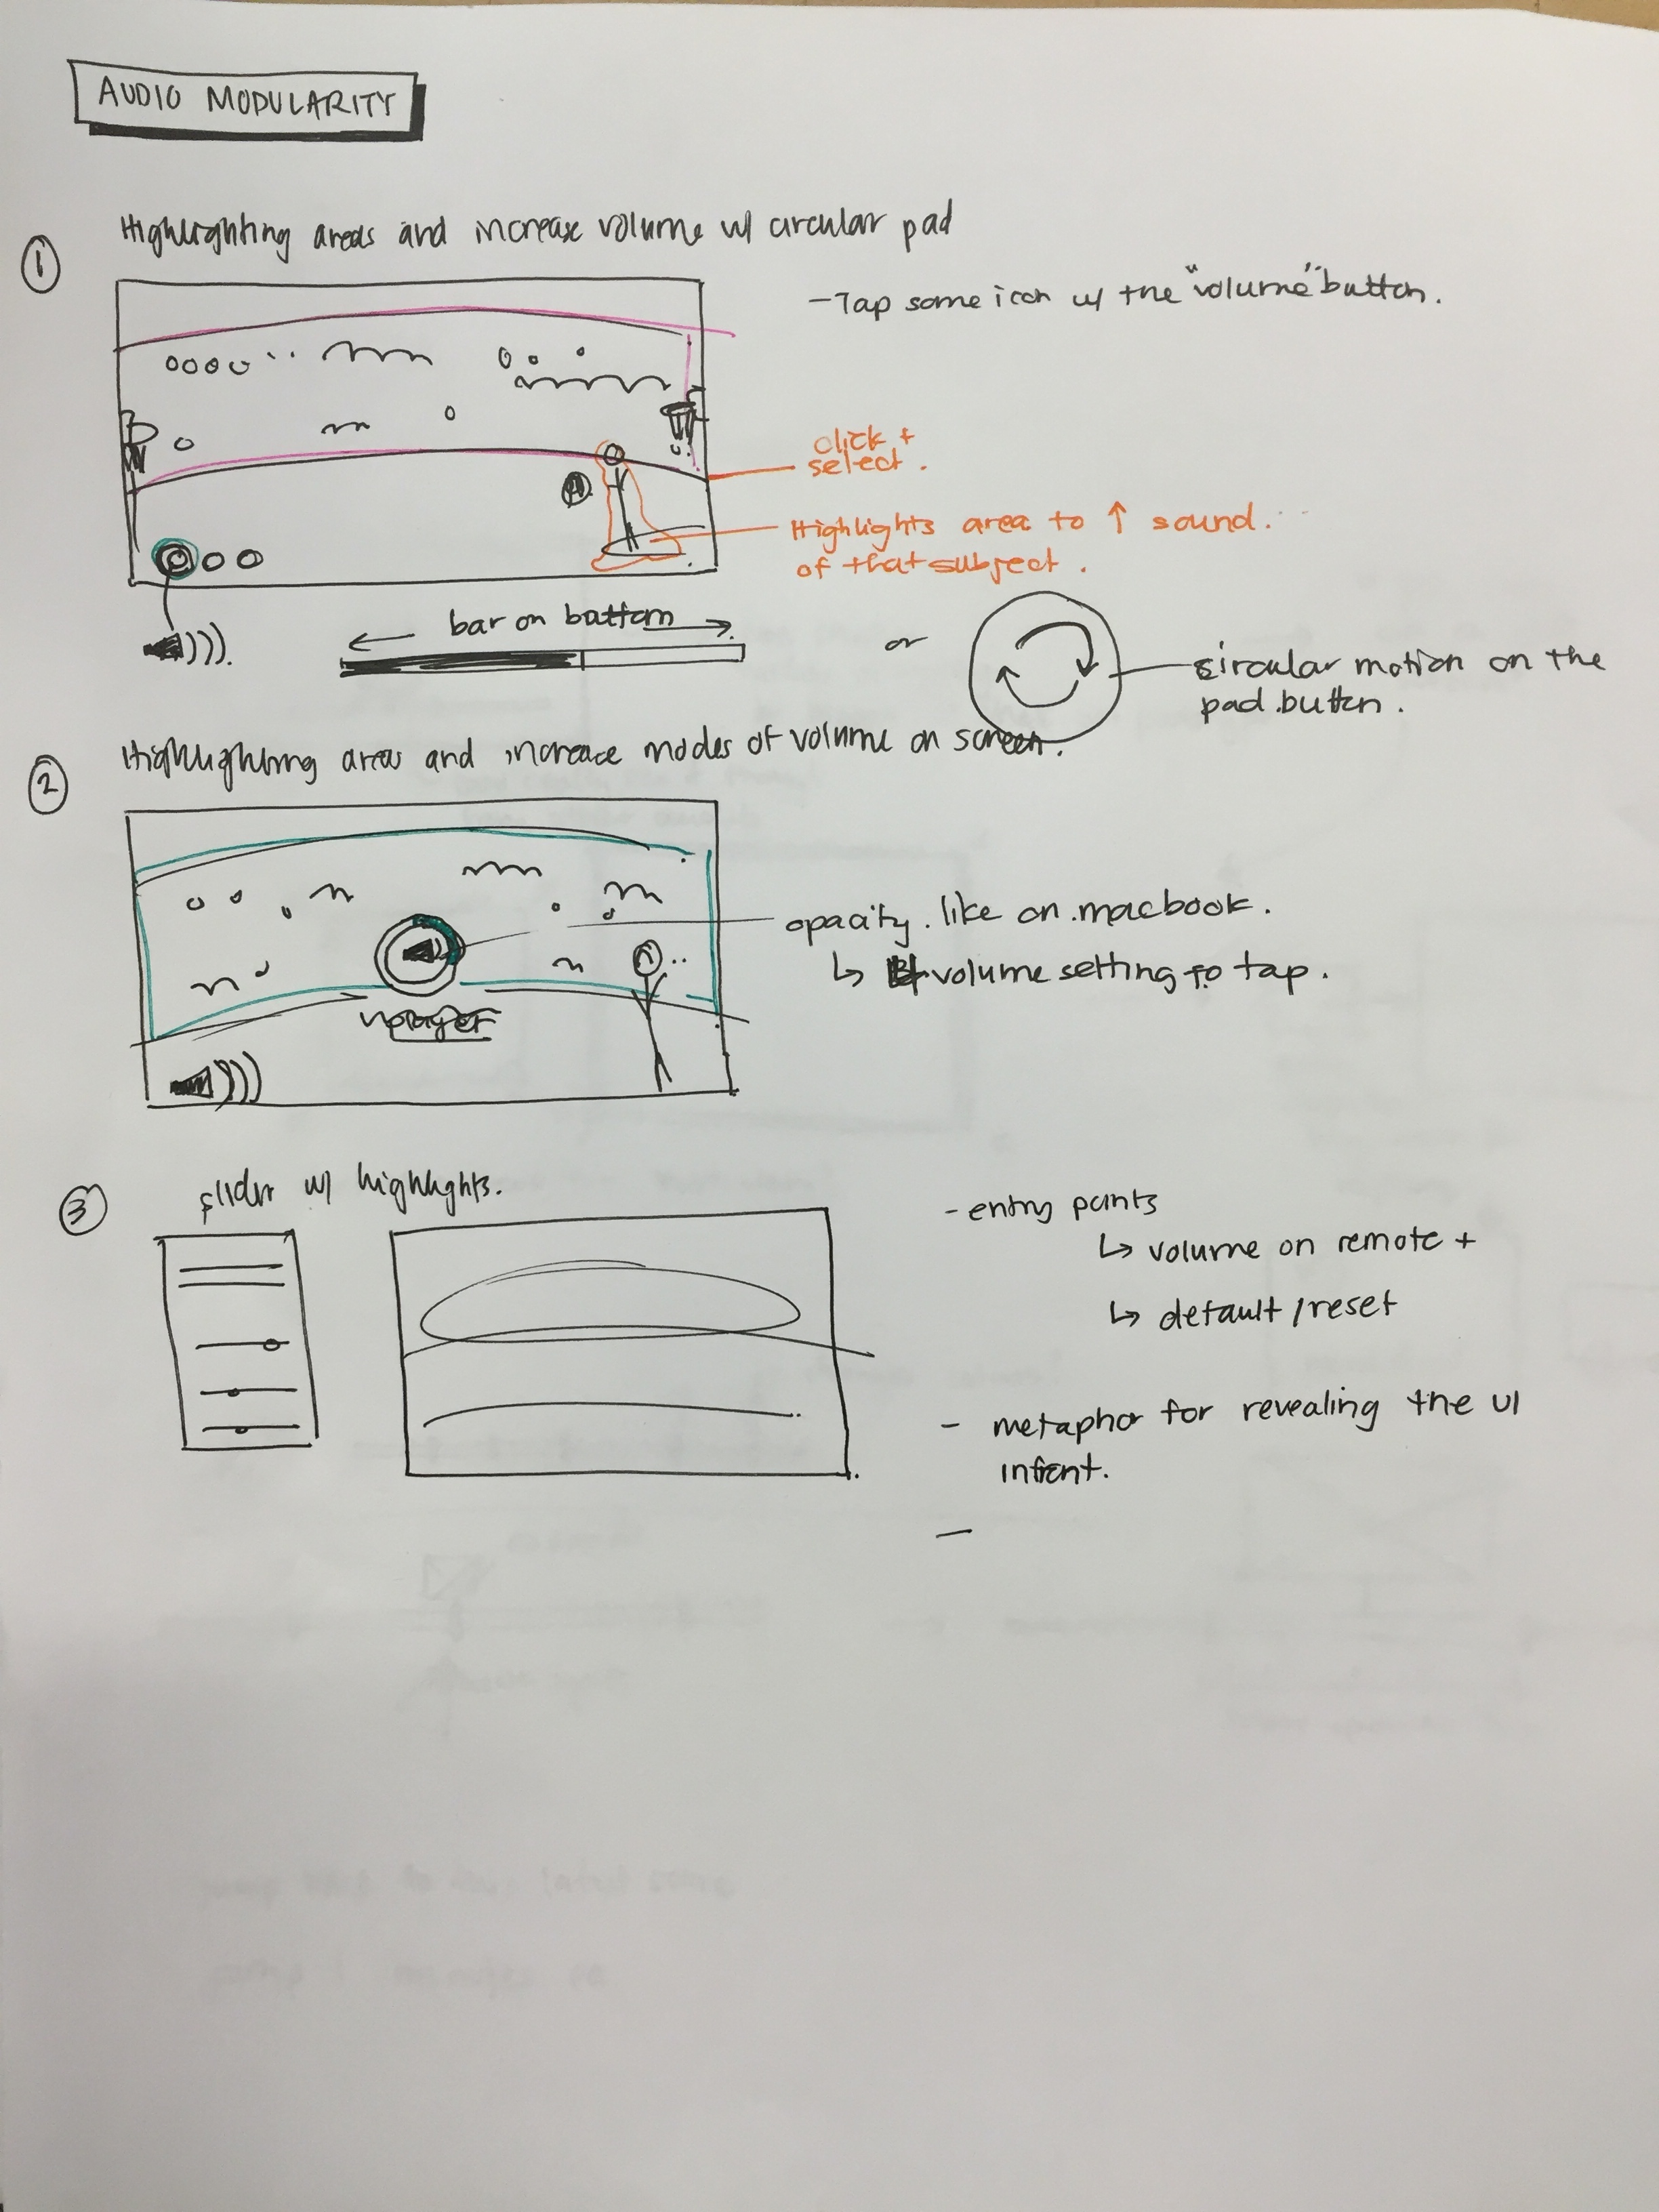 AUDIO MODULARITY
1
Highlighting areas and increase volume w/ circular pad
- Tap some icon w/ the "volume" button.
click +
select.
Highlights area to ↑ sound.
of that subject.
bar on bottom
or
circular motion on the
pad button.
2
Highlighting areas and increase modes of volume on screen.
opacity. like on macbook.
↳ volume setting to tap.
3
slider w/ highlights.
- entry points
↳ volume on remote +
↳ default / reset
- metaphor for revealing the UI
infront.
-